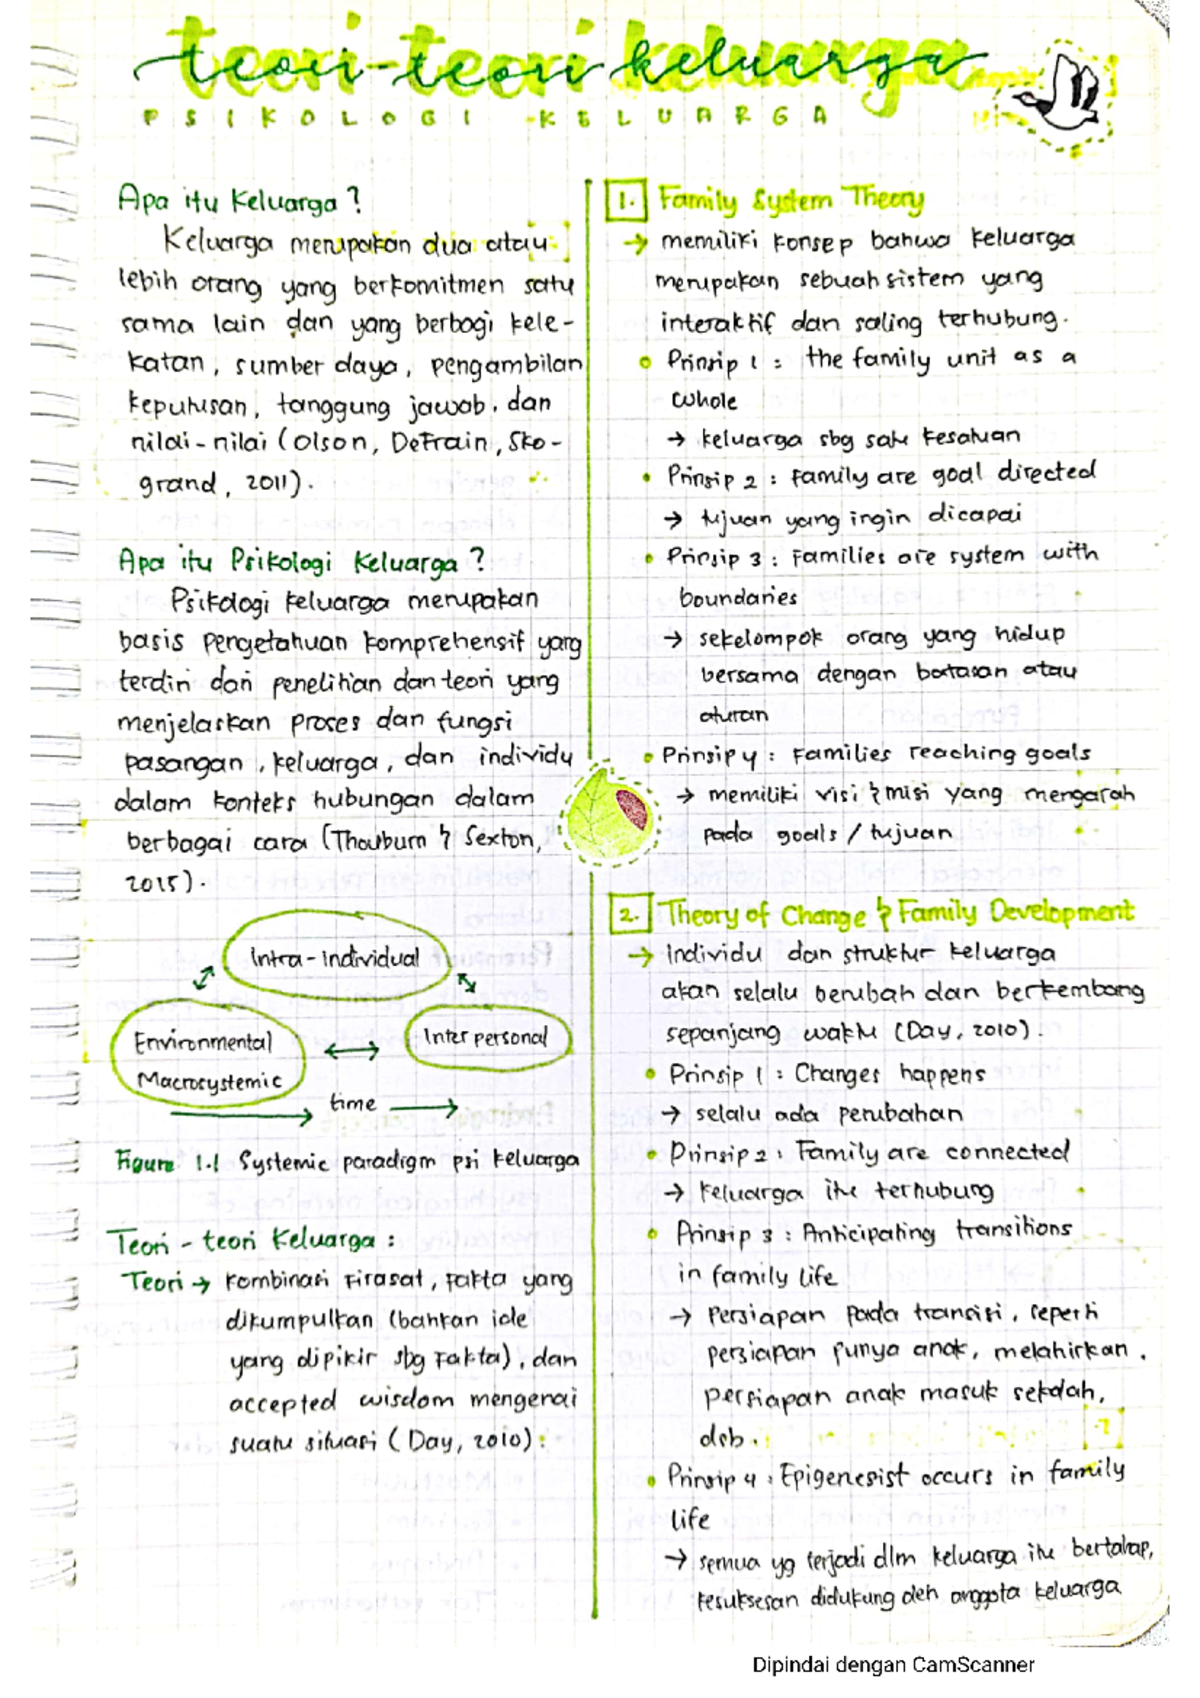 teori-teori keluarga
PSIKOLOGI KELUARGA
Apa itu Keluarga?
Keluarga merupakan dua atau
lebih orang yang berkomitmen satu
sama lain dan yang berbagi kele-
katan, sumber daya, pengambilan
keputusan, tanggung jawab, dan
nilai-nilai (Olson, DeFrain, Sko-
grand, 2011).
Apa itu Psikologi Keluarga?
Psikologi keluarga merupakan
basis pengetahuan komprehensif yang
terdiri dari penelitian dan teori yang
menjelaskan proses dan fungsi
pasangan, keluarga, dan individu
dalam konteks hubungan dalam
berbagai cara (Thoburn & Sexton,
2015).
Intra-individual
Environmental
Macrosystemic
Interpersonal
time
Figure 1.1 Systemic paradigm psi keluarga
Teori-teori Keluarga:
Teori → kombinasi firasat, fakta yang
dikumpulkan (bahkan ide
yang dipikir sbg fakta), dan
accepted wisdom mengenai
suatu situasi (Day, 2010).
1. Family System Theory
→ memiliki konsep bahwa keluarga
merupakan sebuah sistem yang
interaktif dan saling terhubung.
• Prinsip 1: the family unit as a
whole
→ keluarga sbg satu kesatuan
• Prinsip 2: Family are goal directed
→ tujuan yang ingin dicapai
• Prinsip 3: Families are system with
boundaries
→ sekelompok orang yang hidup
bersama dengan batasan atau
aturan
• Prinsip 4: Families reaching goals
→ memiliki visi & misi yang mengarah
pada goals/tujuan
2. Theory of Change & Family Development
→ Individu dan struktur keluarga
akan selalu berubah dan berkembang
sepanjang waktu (Day, 2010).
• Prinsip 1: Changes happens
→ selalu ada perubahan
• Prinsip 2: Family are connected
→ keluarga itu terhubung
• Prinsip 3: Anticipating transitions
in family life
→ Persiapan pada transisi, seperti
persiapan punya anak, melahirkan,
persiapan anak masuk sekolah,
dsb.
• Prinsip 4: Epigenesist occurs in family
life
→ semua yg terjadi dlm keluarga itu bertahap,
kesuksesan didukung oleh anggota keluarga
Dipindai dengan CamScanner